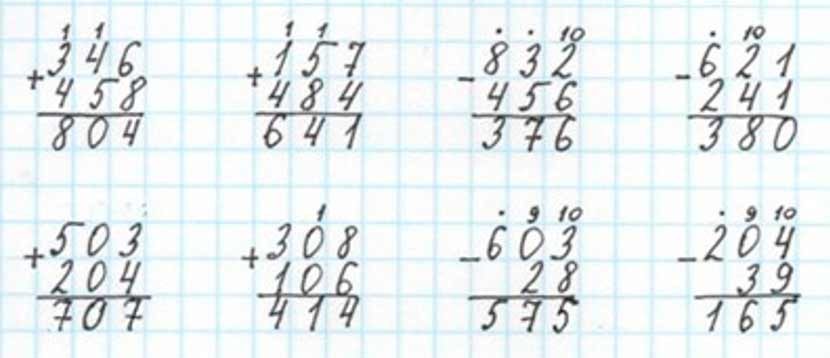 1 1
346
+
458
804
1 1
157
+
484
641
. . 10
832
-
456
376
. 10
621
-
241
380
503
+
204
707
1
308
+
106
414
. 9 10
603
-
28
575
. 9 10
204
-
39
165